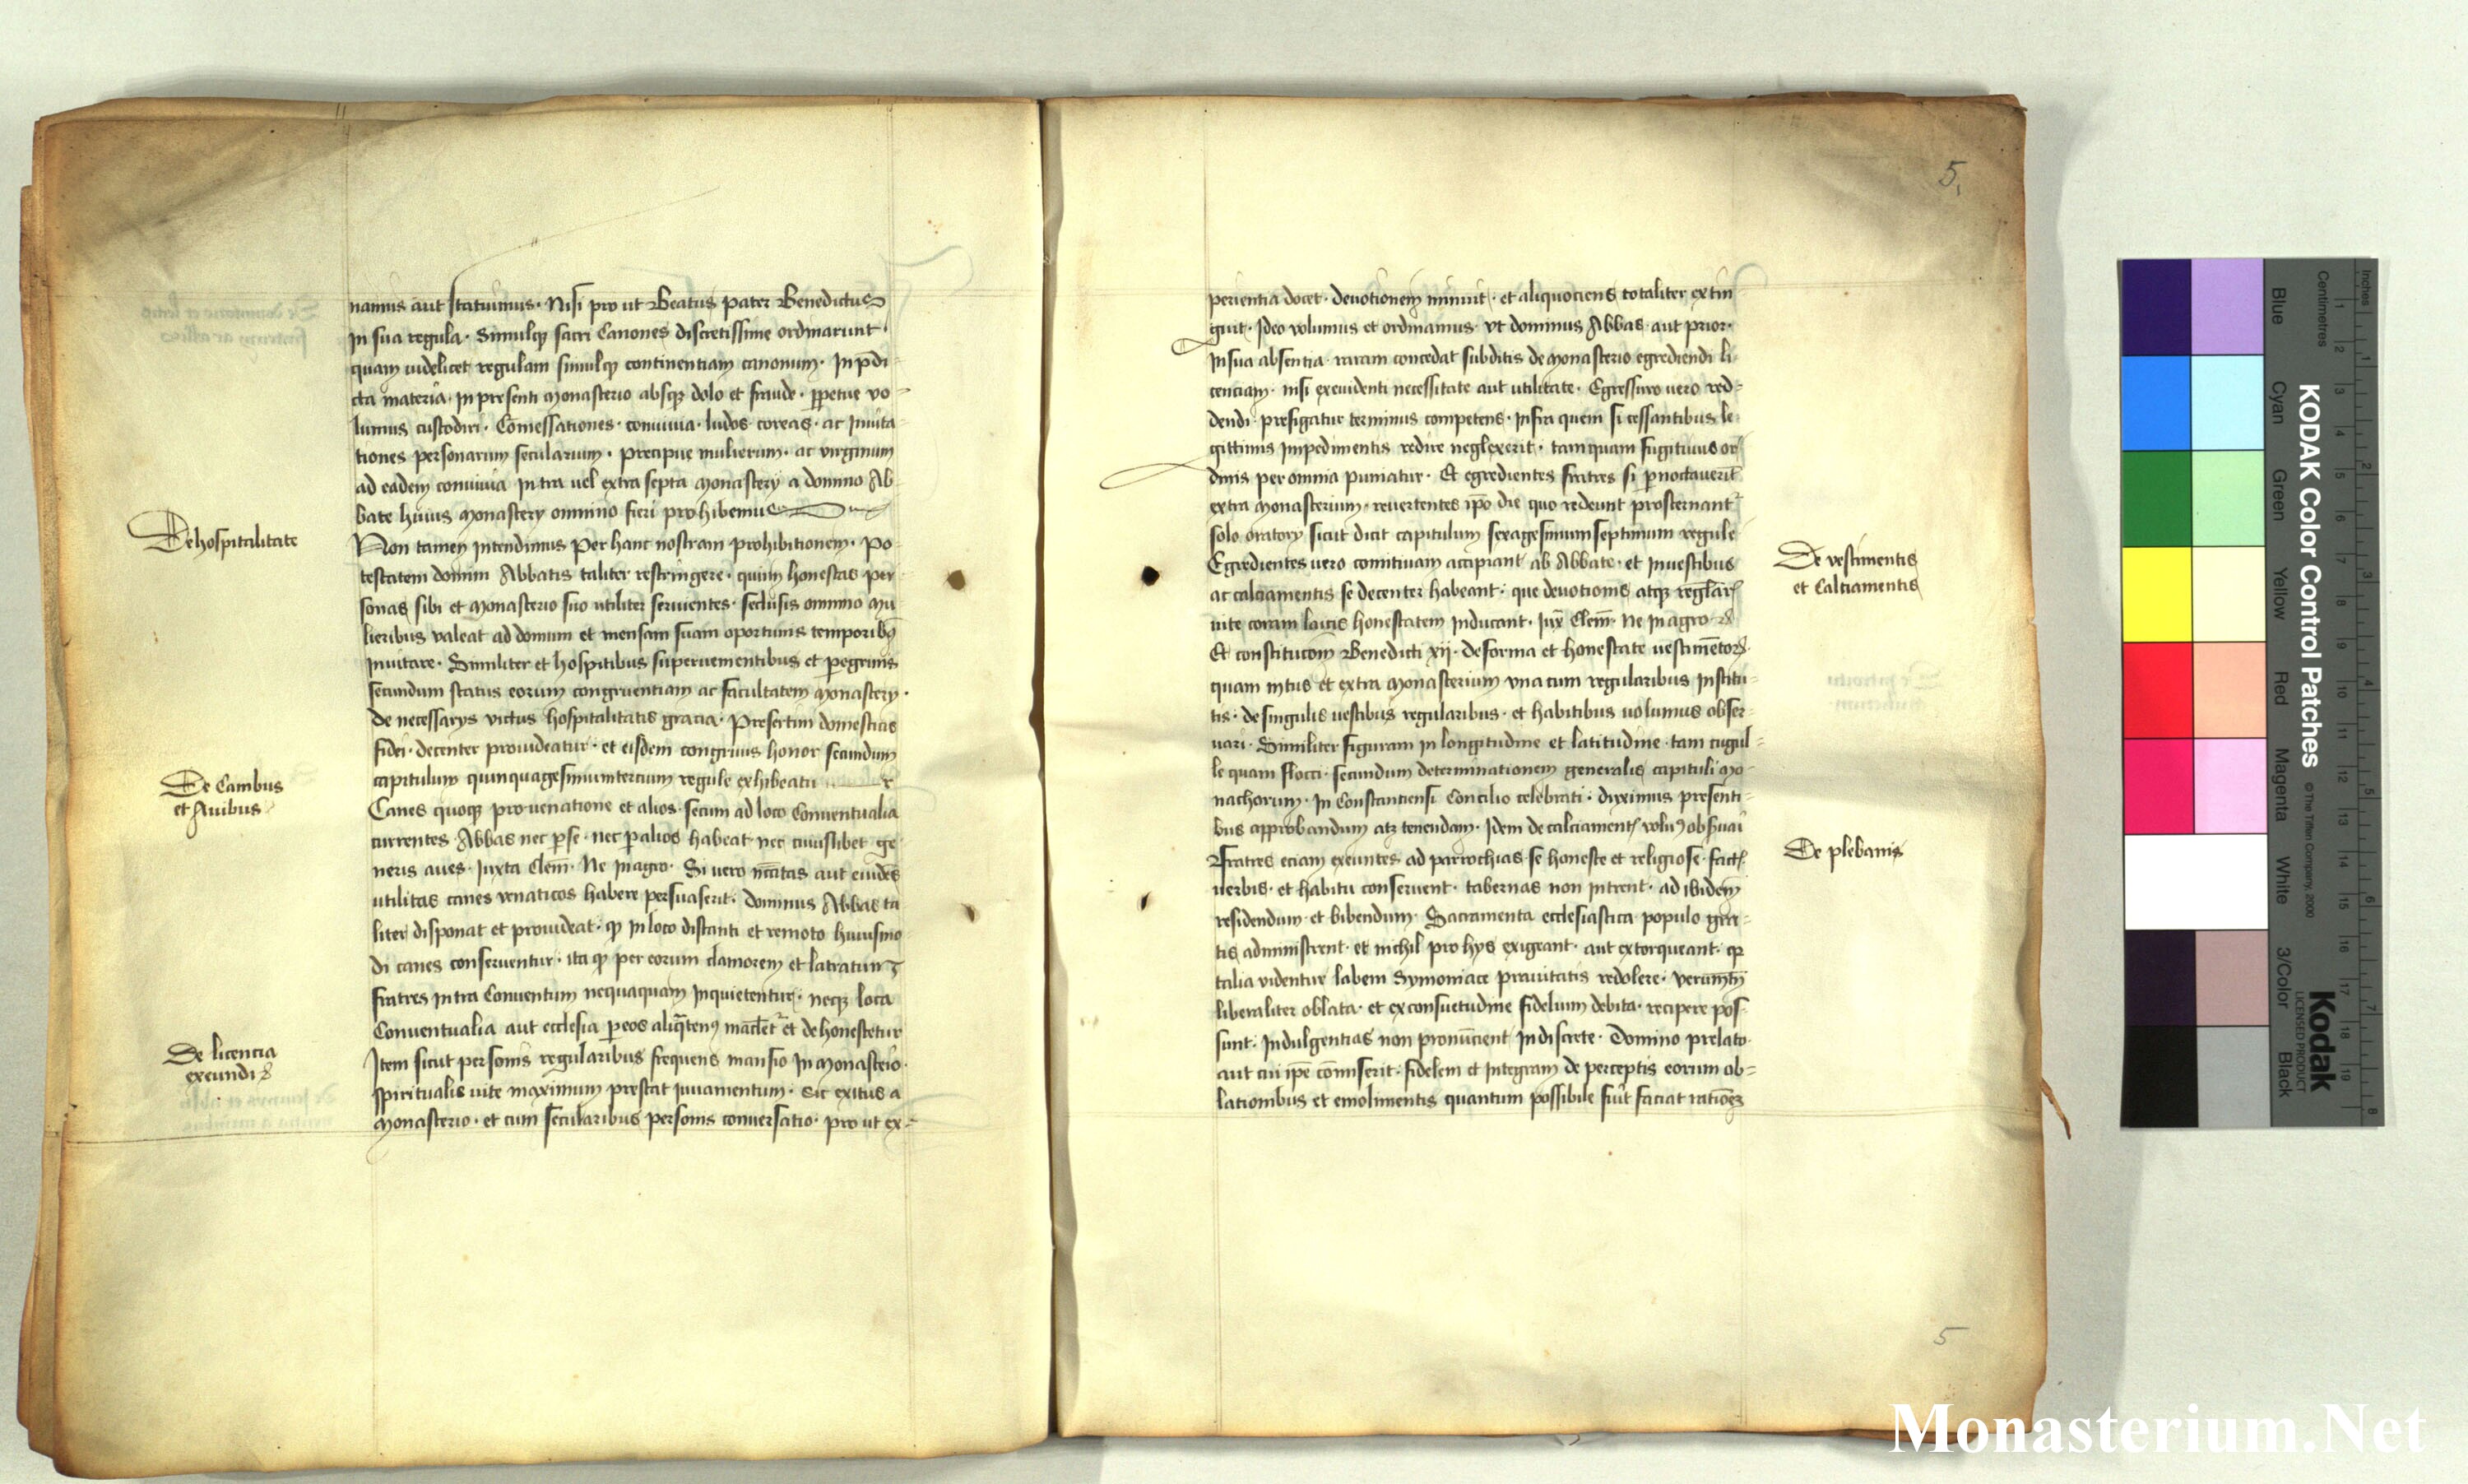 namus aut statuimus. Nisi pro ut Beatus pater Benedictus
In sua regula. Simulq3 sacri Canones discretissime ordinarunt.
quam videlicet regulam simulq3 continentiam canonum. In p̄di
cta materia. In presenti Monasterio absq3 dolo et fraude. ꝑpetue vo
lumus custodiri. Comessationes. conuiuia. ludos. coreas. ac Inuita
tiones personarum secularium. precipue mulierum. ac virginum
ad eadem conuiuia Intra uel extra septa Monastery a domino Ab
bate huius Monastery omnino fieri prohibemus
De hospitalitate
Non tamen Intendimus Per hanc nostram prohibitionem. Po
testatem domini Abbatis taliter restringere. quin honestas per
sonas sibi et Monasterio suo utiliter seruientes. seclusis omnino Mu
lieribus valeat ad domum et mensam suam oportunis temporibꝰ
Inuitare. Similiter et hospitibus superuenientibus et ꝑegrinis
secundum status eorum congruentiam ac facultatem Monastery.
De necessarys victus hospitalitatis gracia. Presertim domesticis
fidei. decenter prouideatur. et eisdem congruus honor secundum
capitulum quinquagesimumtercium regule exhibeatur
De Canibus
et Auibus
Canes quoq3 pro uenatione et alios. secum ad loca Conuentualia
currentes Abbas nec ꝑ se. nec ꝑ alios habeat nec cuiuslibet ge
neris aues. Iuxta Clem̄. Ne In agro. Si uero nc̄citas aut euidēs
utilitas canes venaticos habere persuaserit. dominus Abbas ta
liter disponat et prouideat. qꝫ In loco distanti et remoto huiusmo
di canes conseruentur. ita qꝫ per eorum clamorem et latratum
fratres Intra Conuentum nequaquam Inquietentur. neq3 loca
Conuentualia aut ecclesia ꝑ eos aliq̄tenꝰ mac̄let᷑ et dehonestetur
De licencia
exeundi
Item sicut personis regularibus frequens mansio In Monasterio.
spiritualis uite maximum prestat Iuuamentum. Sic exitus a
Monasterio. et cum secularibus personis conuersatio. pro ut ex-
5.
perientia docet. deuotionem minuit. et aliquociens totaliter extin
guit. Ideo volumus et ordinamus. vt dominus Abbas. aut prior.
In sua absentia. raram concedat subditis de Monasterio egrediendi li
cenciam. nisi ex euidenti necessitate aut utilitate. Egressuro uero red-
dendi. prefigatur terminus competens. Infra quem si cessantibus le
gittimis Impedimentis redire neglexerit. tamquam fugitiuus or
dinis per omnia puniatur. Et egredientes fratres si ꝑnoctauerit̄
extra Monasterium. reuertentes ip̄o die quo redeunt prosternant᷑
solo oratory sicut dicit capitulum sexagesimumseptimum regule
De vestimentis
et Calciamentis
Egredientes uero comitiuam accipiant ab Abbate. et In uestibus
ac calciamentis se decenter habeant. que deuotionis atq3 regl̄ar̄
uite coram laicis honestatem Inducant. Iux̄ Clem̄. Ne In agro
Et constitucōm Benedicti xij. de forma et honestate uestimētor̄
quam intus et extra Monasterium vna cum regularibus Institu-
tis. de singulis uestibus regularibus. et habitibus uolumus obser-
uari. Similiter figuram In longitudine et latitudine. tam cugul-
le quam flocci. secundum determinationem generalis capituli Mo-
nachorum. In Constantiensi Concilio celebrati. duximus presenti-
bus approbandum atq3 tenendam. Idem de calciament̄ volumꝰ obseruari
De plebanis
Fratres eciam exeuntes ad parrochias se honeste et religiose fact̄.
uerbis. et habitu conseruent. tabernas non Intrent. ad ibidem
residendum et bibendum. Sacramenta ecclesiastica populo gra-
tis administrent. et nichil pro hys exigeant. aut extorqueant. qꝫ
talia videntur labem Symoniace prauitatis redolere. Verumt̄n
liberaliter oblata. et ex consuetudine fidelium debita. recipere pos-
sunt. Indulgentias non pronūcient Indiscrete. Domino prelato.
aut cui ip̄e cōmiserit. fidelem et Integram de perceptis eorum ob-
lationibus et emolimentis quantum possibile fuit faciat rationē
5
KODAK Color Control Patches
© The Tiffen Company, 2000
Kodak
LICENSED PRODUCT
Inches
Centimetres
Blue
Cyan
Green
Yellow
Red
Magenta
White
3/Color
Black
Monasterium.Net